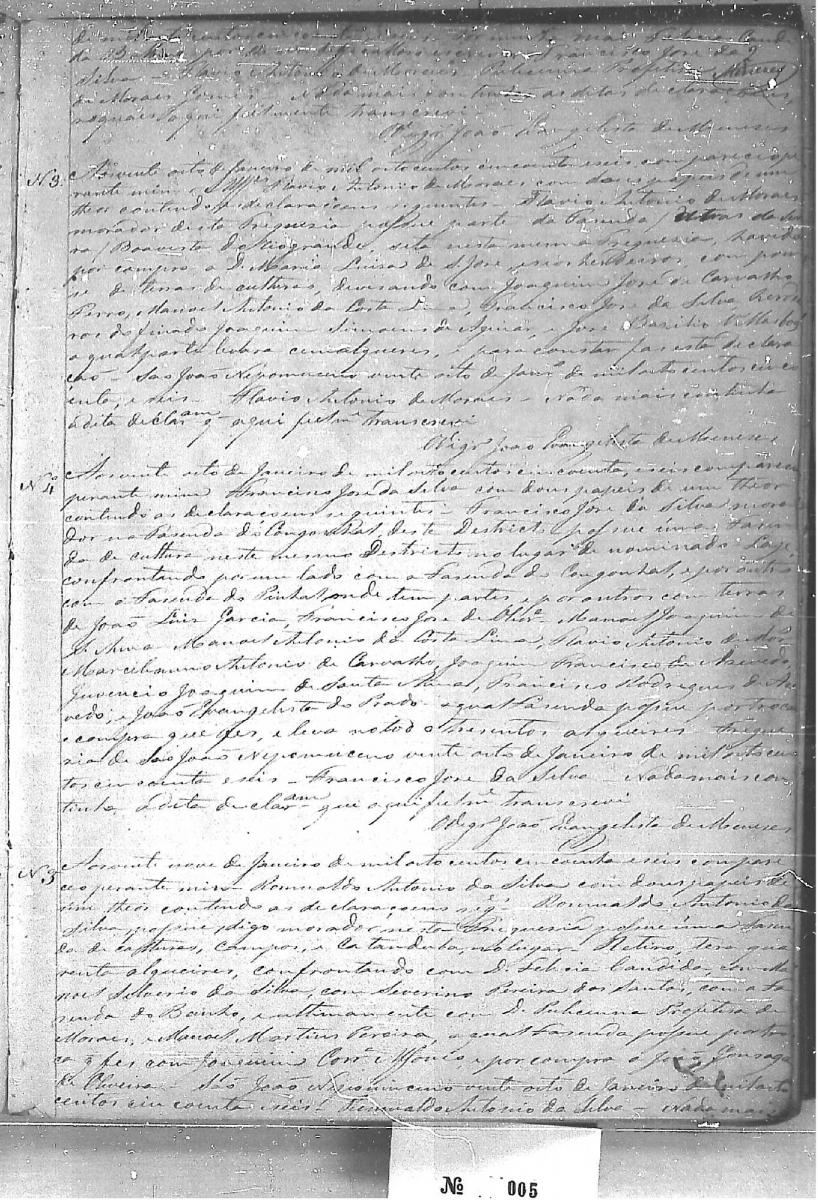 da Silva Cand
da Francisco José da
Silva — Flavio Antonio de Moraes Policena Profeta
de Moraes Gomes — Nada mais continha as ditas declaraçoens,
as quaes aqui fielmente transcrevi
O Vigr.º João Evangelista de Menezes
N 3. Aos vinte oito de Janeiro de mil oito centos cincoenta e seis compareceo pe
rante mim Flavio Antonio de Moraes com dous papeis de um
theor contendo as declaraçoens seguintes — Flavio Antonio de Moraes
morador desta Freguesia possue parte da Fasenda / atras da Ser
ra / Boavista do Riogrande, sita nesta mesma Freguesia, havida
por compra a D. Maria Luisa de S. José, e seos herdeiros com
de terras de culturas, devisando com Joaquim José de Carvalho
Manoel Antonio da Costa Lima, Francisco José da Silva herdei
ros do finado Joaquim Simoens de Aguiar, e José Basilio
a qual parte levara cem alqueres, e para constar faz esta declara
caõ — Saõ Joaõ Nepomuceno vinte oito de Janr.º de mil oito centos cinco
enta, e seis — Flavio Antonio de Moraes — Nada mais continha
a dita declaram q aqui fielm.e transcrevi
O Vigr.º João Evangelista de Menezes
N 4 Aos vinte oito de Janeiro de mil oito centos cincoenta, e seis compareceo
perante mim Francisco José da Silva com dous papeis de um theor
contendo as declaraçoens seguintes — Francisco José da Silva mora
dor na Fasenda do Congonhal, deste Districto possue uma Fasen
da de cultura neste mesmo Districto no lugar denominado Lage,
confrontando por um lado com a Fasenda do Congonhal, e por outro
com a Fasenda do Pinhal, onde tem partes e por outros com terras
de João Luis Garcia, Francisco José de Olivr.ª Manoel Joaquim de
S. Anna Manoel Antonio da Costa Lima, Flavio Antonio de
Marcelinno Antonio de Carvalho, Joaquim Francisco de Asevedo,
Juvencio Joaquim de Santa Anna, Francisco Rodrigues de Ase
vedo, e João Evangelista do Prado a qual Fasenda possue por troca
e compra que fes, e leva no todo tresentos alqueires Fregue
sia de Saõ Joaõ Nepomuceno vinte oito de Janeiro de mil oito cen
tos cincoenta e seis — Francisco José da Silva — Nada mais con
tinha a dita declaram que aqui fielm.e transcrevi
O Vigr.º João Evangelista de Menezes
N 5 Aos vinte nove de Janeiro de mil oito centos cincoenta e seis compare
ceo perante mim Romualdo Antonio da Silva com dous papeis de
um theor contendo as declaraçoens Romualdo Antonio da
Silva, possue, digo morador nesta Freguesia possue uma Fasen
da de culturas, campos, e Catanduva, no lugar — Retiro, tera qua
renta alqueires, confrontando com D. Felicia Candida, com Ma
noel Silverio da Silva, com Severino Pereira dos Santos, com a Fa
senda do Banho, e ultimamente com D. Policena Profetisa de
Moraes, e Manoel Martins Pereira, a qual Fasenda possue por tro
ca q fes com Joaquim Corr.ª e por compra a Gonsaga
de Oliveira — Saõ Joaõ Nepomuceno vinte oito de Janeiro de mil oito
centos cincoenta e seis — Romualdo Antonio da Silva — Nada mais
Nº 005